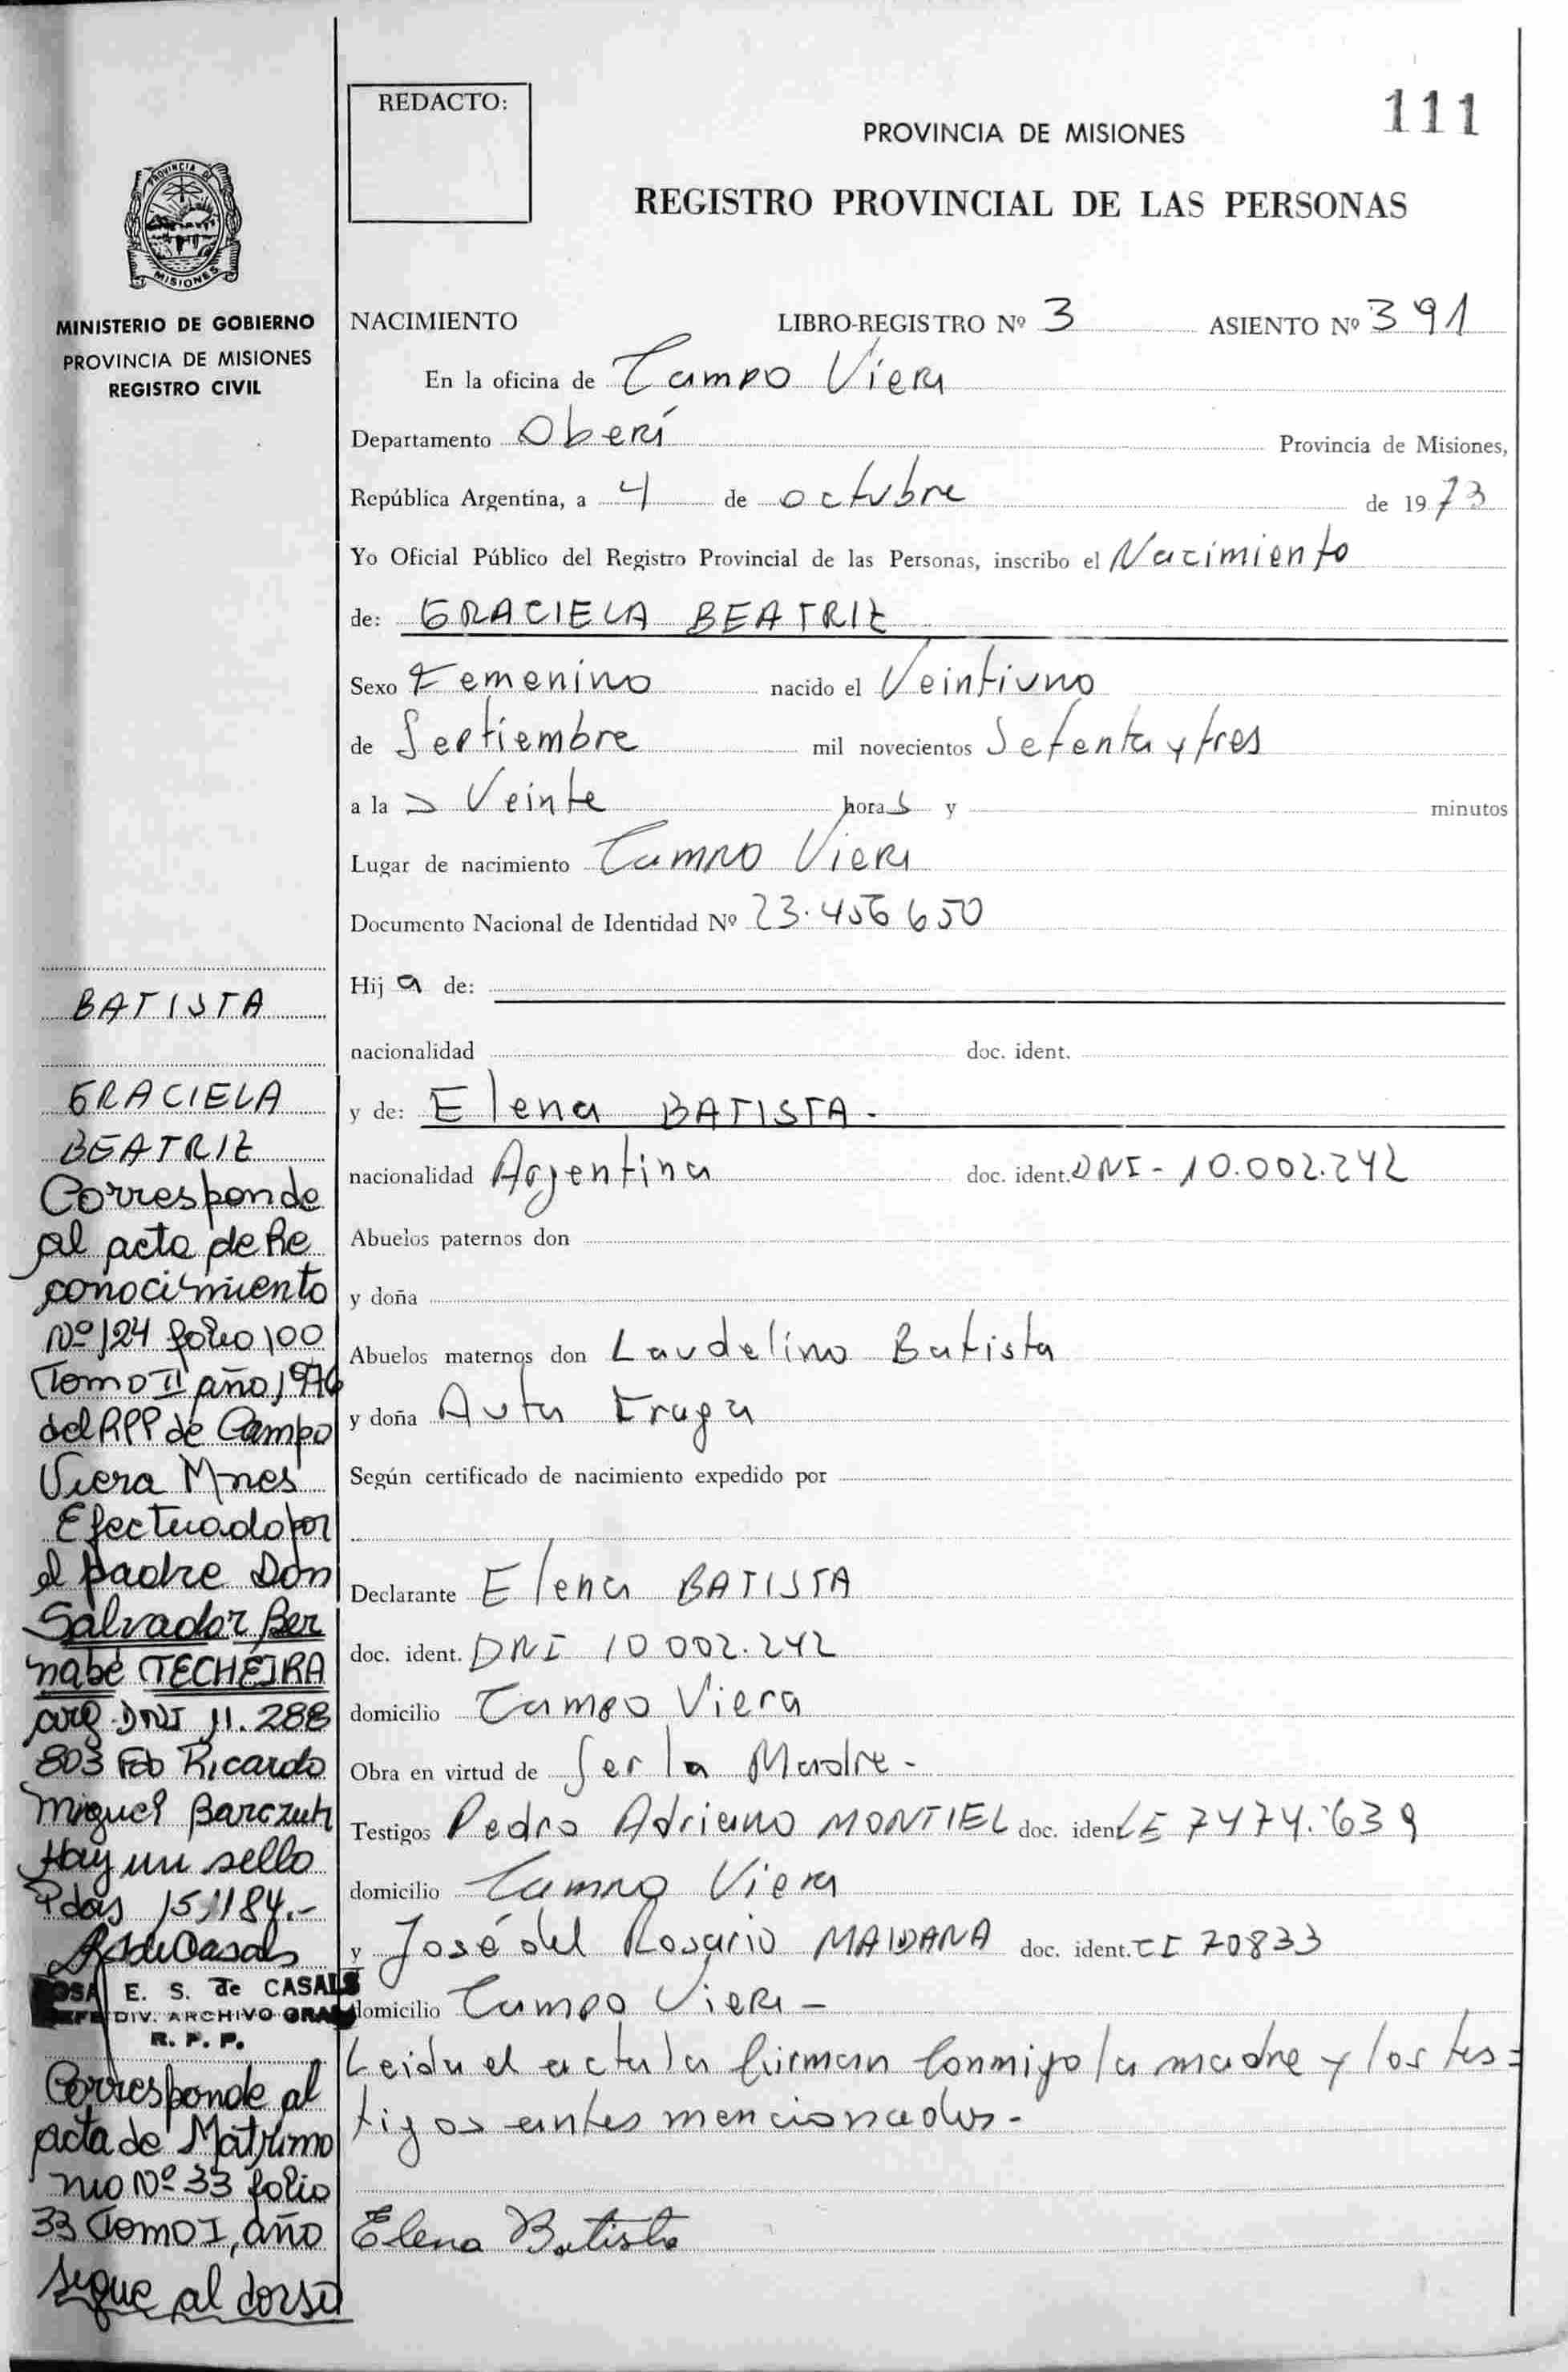 REDACTO:
111
PROVINCIA DE MISIONES
REGISTRO PROVINCIAL DE LAS PERSONAS
PROVINCIA DE
MISIONES
MINISTERIO DE GOBIERNO
PROVINCIA DE MISIONES
REGISTRO CIVIL
NACIMIENTO LIBRO-REGISTRO Nº 3 ASIENTO Nº 391
En la oficina de Campo Viera
Departamento Oberá Provincia de Misiones,
República Argentina, a 4 de octubre de 1973
Yo Oficial Público del Registro Provincial de las Personas, inscribo el Nacimiento
de: GRACIELA BEATRIZ
Sexo Femenino nacido el Veintiuno
de Septiembre mil novecientos Setenta y tres
a las Veinte horas y minutos
Lugar de nacimiento Campo Viera
Documento Nacional de Identidad Nº 23.456650
Hija de:
nacionalidad doc. ident.
y de: Elena BATISTA.
nacionalidad Argentina doc. ident. DNI - 10.002.242
Abuelos paternos don
y doña
Abuelos maternos don Laudelino Batista
y doña Auta Fraga
Según certificado de nacimiento expedido por
Declarante Elena BATISTA
doc. ident. DNI 10 002.242
domicilio Campo Viera
Obra en virtud de Ser la Madre -
Testigos Pedro Adriano MONTIEL doc. ident LE 7474.639
domicilio Campo Viera
y José del Rosario MAIDANA doc. ident. CI 70833
domicilio Campo Viera -
Leida el acta la firman conmigo la madre y los tes=
tigos antes mencionados -
Elena Batista
BATISTA
GRACIELA
BEATRIZ
Corresponde
al acta de Re
conocimiento
Nº 124 folio 100
Tomo II año 1976
del RPP de Campo
Viera Mnes
Efectuado por
el padre Don
Salvador Ber
nabé TECHEIRA
arg. DNI 11.288
803 Fdo Ricardo
Miguel Barczuk
Hay un sello
Pdas 15/1/84.-
R S de Casals
ROSA E. S. de CASALS
JEFE DIV. ARCHIVO GRAL
R. P. P.
Corresponde al
acta de Matrimo
nio Nº 33 folio
33 Tomo I, año
sigue al dorso